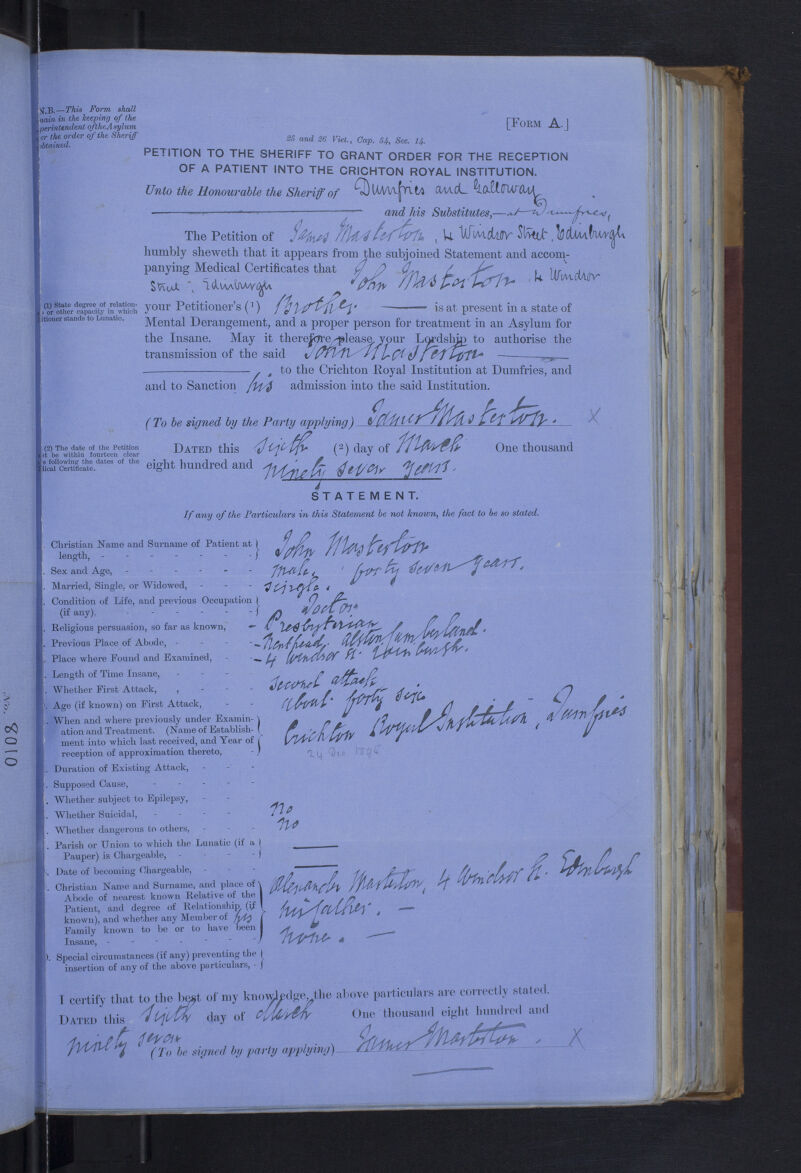 N.B.—This Form shall
in the keeping of the
perintendent of the Asylum
or the order of the Sheriff
obtained.
[FORM A.]
25 and 26 Vict., Cap. 54, Sec. 14.
PETITION TO THE SHERIFF TO GRANT ORDER FOR THE RECEPTION
OF A PATIENT INTO THE CRICHTON ROYAL INSTITUTION.
Unto the Honourable the Sheriff of Dumfries and Galloway
and his Substitutes,—at Dumfries,
The Petition of James Masterton, 4 Windsor Street, Edinburgh
humbly sheweth that it appears from the subjoined Statement and accom-
panying Medical Certificates that John Masterton 4 Windsor
Street, Edinburgh
(1) State degree of relation-
or other capacity in which
itioner stands to Lunatic.
your Petitioner's (1) Brother is at present in a state of
Mental Derangement, and a proper person for treatment in an Asylum for
the Insane. May it therefore please your Lordship to authorise the
transmission of the said John Masterton
to the Crichton Royal Institution at Dumfries, and
and to Sanction his admission into the said Institution.
(To be signed by the Party applying) James Masterton. X
(2) The date of the Petition
be within fourteen clear
following the dates of the
lical Certificate.
DATED this Sixth (2) day of March One thousand
eight hundred and ninety seven years.
STATEMENT.
If any of the Particulars in this Statement be not known, the fact to be so stated.
Christian Name and Surname of Patient at
length, - John Masterton
Sex and Age, - Male, forty seven years.
Married, Single, or Widowed, - Single.
Condition of Life, and previous Occupation
(if any). - Doctor
Religious persuasion, so far as known, - Presbyterian
Previous Place of Abode, - Nenthead. Alston Cumberland.
Place where Found and Examined, - 4 Windsor St. Edinburgh.
Length of Time Insane, -
Whether First Attack, - Second attack
Age (if known) on First Attack, - about forty six
When and where previously under Examin-
ation and Treatment. (Name of Establish-
ment into which last received, and Year of
reception of approximation thereto, - Crichton Royal Institution, Dumfries
24 Dec 1895
Duration of Existing Attack, -
Supposed Cause, -
Whether subject to Epilepsy, -
Whether Suicidal, - No
Whether dangerous to others, - No
Parish or Union to which the Lunatic (if a
Pauper) is Chargeable, -
Date of becoming Chargeable, -
Christian Name and Surname, and place of
Abode of nearest known Relative of the
Patient, and degree of Relationship (if
known), and whether any Member of his
Family known to be or to have been
Insane, - Alexander Masterton, 4 Windsor St. Edinburgh
his father. —
None. —
Special circumstances (if any) preventing the
insertion of any of the above particulars, -
I certify that to the best of my knowledge, the above particulars are correctly stated.
DATED this Sixth day of March One thousand eight hundred and
ninety seven
(To be signed by party applying) James Masterton. X
No.
0108